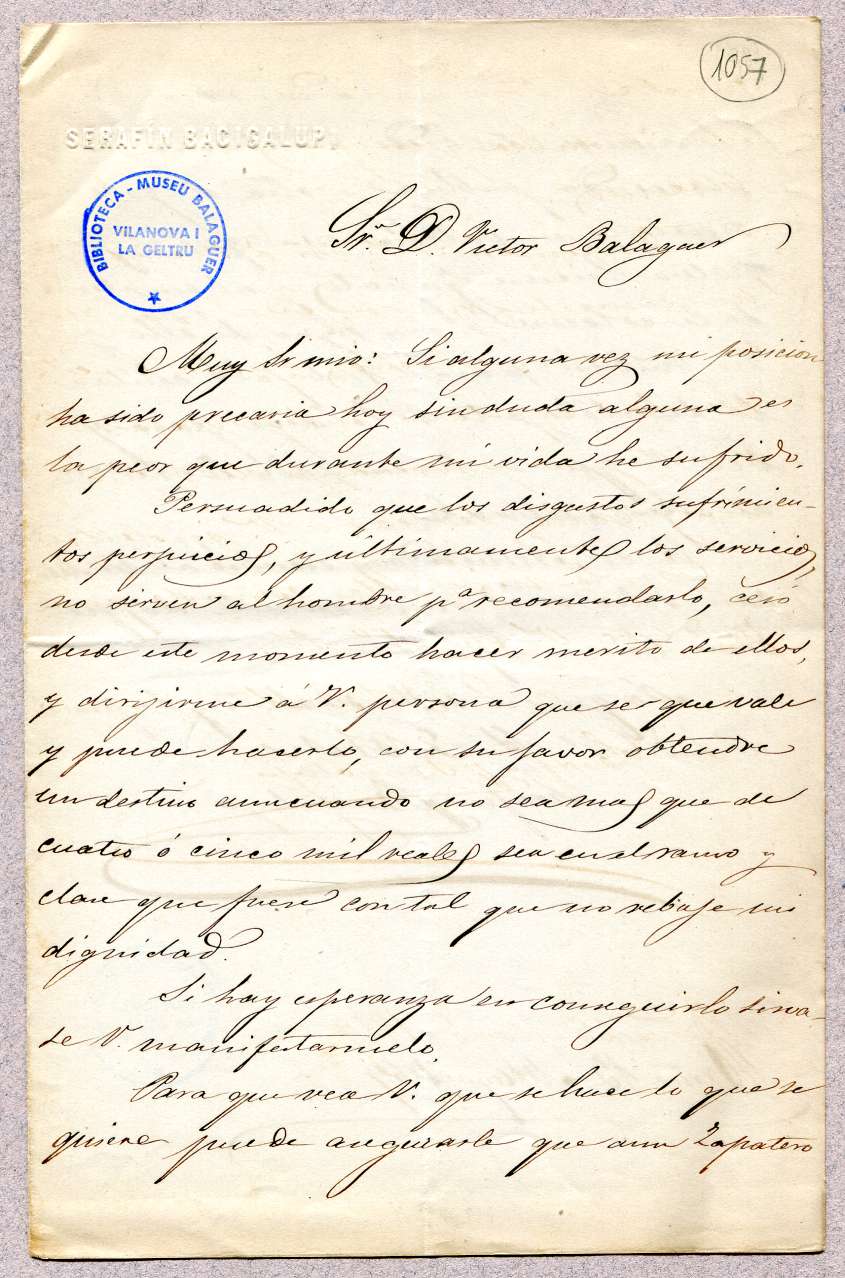 1057
SERAFIN BACIGALUPI
BIBLIOTECA - MUSEU BALAGUER
VILANOVA I
LA GELTRU
Sr. D. Victor Balaguer
Muy Sr mio: Si alguna vez mi posicion
ha sido precaria hoy sin duda alguna es
la peor que durante mi vida he sufrido.
Persuadido que los disgustos sufrimien-
tos perjuicios, y últimamente los servicios,
no sirven al hombre pa recomendarlo, ceso
desde este momento hacer merito de ellos,
y dirijirme á V. persona que se que vale
y puede hacerlo, con su favor obtendre
un destino aun cuando no sea mas que de
cuatro ó cinco mil reales sea en el ramo y
clase que fuese con tal que no rebaje mi
dignidad.
Si hay esperanza en conseguirlo sirva-
se V. manifestarmelo.
Para que vea V. que se hace lo que se
quiere puede asegurarle que a un Zapatero